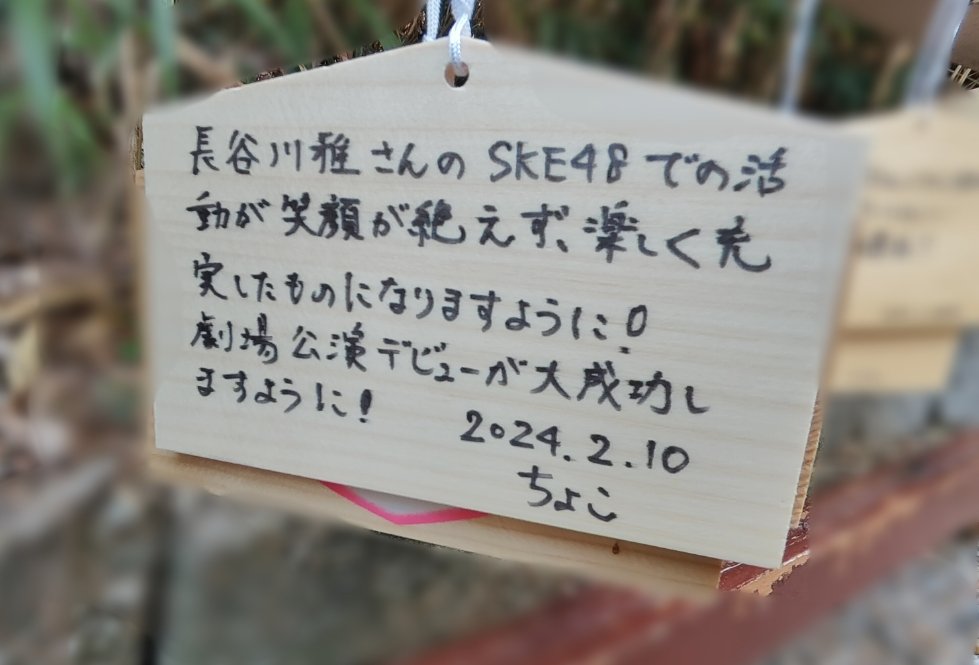 長谷川雅さんのSKE48での活
動が笑顔が絶えず、楽しく充
実したものになりますように!
劇場公演デビューが大成功し
ますように!
2024.2.10
ちょこ